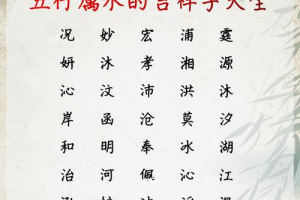 五行属水的吉祥字大全
况 妙 宏 浦 霆
妍 沐 孝 湘 源
沁 汶 沛 洪 沐
岸 函 沧 莫 汐
和 明 奉 冰 湖
治 河 佩 沁 江